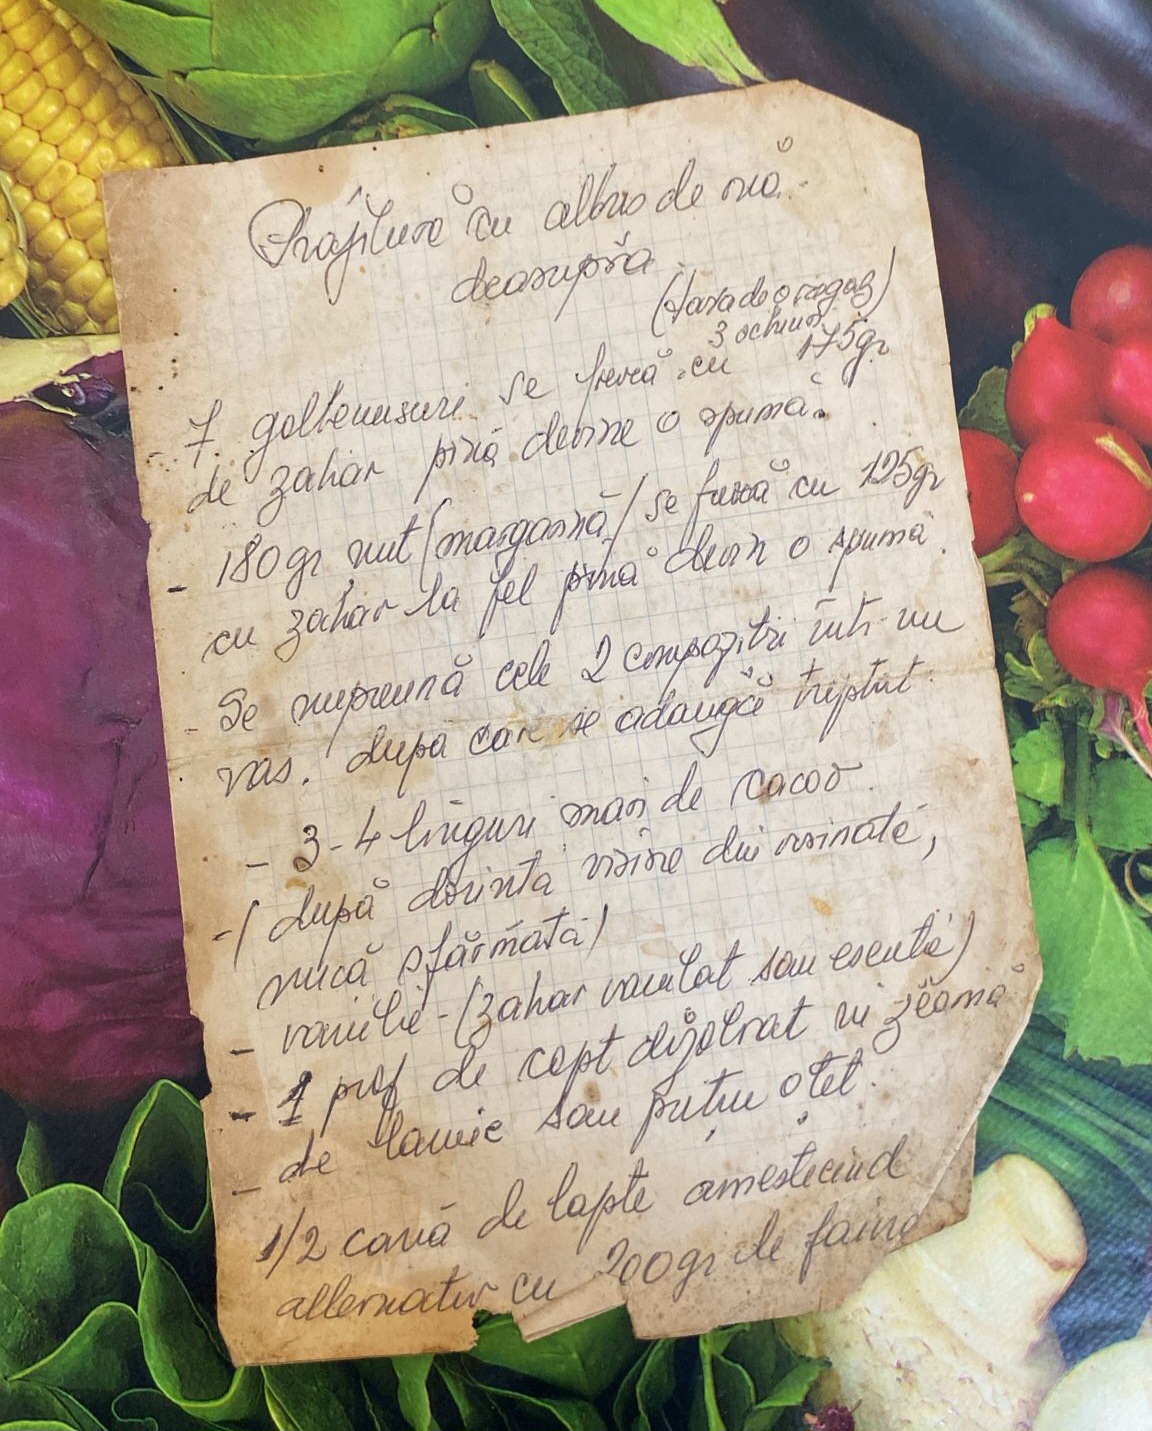 Prăjitură cu albuș de ouă
deasupra
(tava de aragaz)
3 ochiuri
- 7 gălbenușuri se freacă cu 175gr
de zahar pînă devine o spumă.
- 180gr unt (margarină) se freacă cu 125gr
cu zahar la fel pînă devin o spumă.
- Se împreună cele 2 compoziții într-un
vas. după care se adaugă treptat.
- 3-4 linguri mari de cacao
- (după dorință vișine din vișinată,
nucă sfărmată)
- vanilie - (zahar vanilat sau esență)
- 1 praf de copt dizolvat în zeamă
de lamîie sau puțin oțet.
- 1/2 cană de lapte amestecînd
alternativ cu 200gr de faină